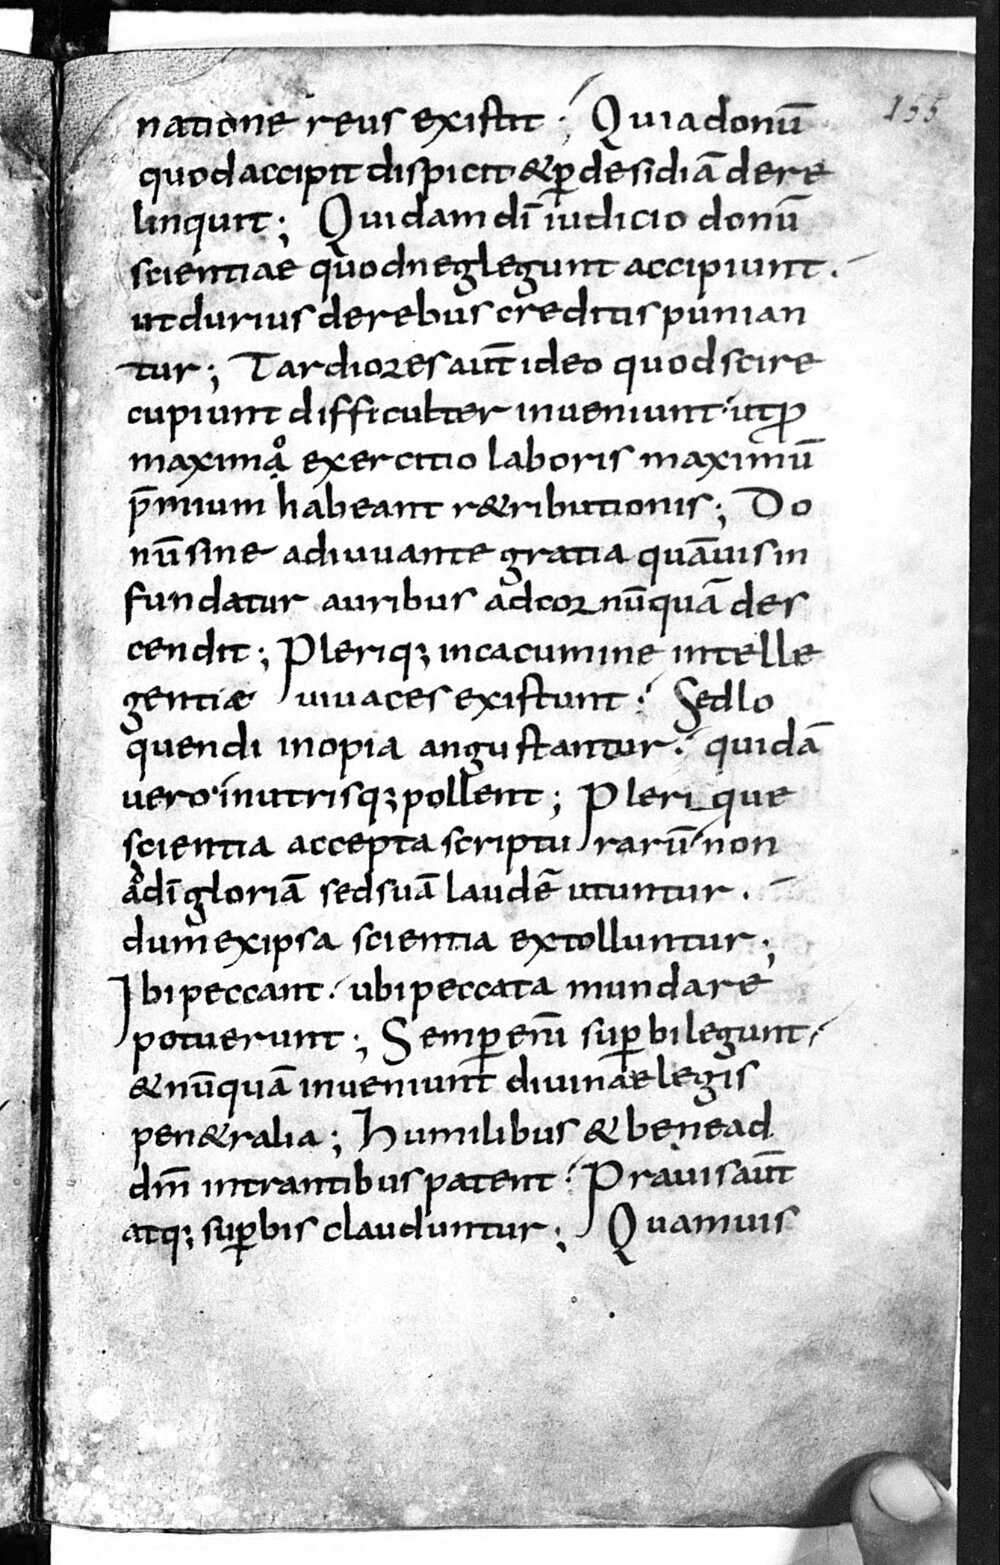 155
natione reus existit; Quia donū
quod accipit dispicit & p̄ desidiā dere
linquit; Quidam dī iudicio donū
scientiae quod neglegunt accipiunt.
ut durius de rebus creditis punian
tur; Tardiores aut̄ ideo quod scire
cupiunt difficulter inueniunt. ut ꝓ
maximo exercitio laboris maximū
p̄mium habeant r&ributionis; Do
nū sine adiuuante gratia quāuis in
fundatur auribus ad cor nūquā des
cendit; Pleriq; in cacumine intelle
gentiæ uiuaces existunt; Sed lo
quendi inopia angustantur. quidā
uero in utrisq; pollent; Plerique
scientia accepta scripturarū non
ad dī gloriā sed suā laudē utuntur.
dum ex ipsa scientia extolluntur;
Ibi peccant. ubi peccata mundare
potuerunt; Semꝑ eni͞ suꝑbi legunt.
& nūquā inueniunt diuinae legis
pen&ralia; Humilibus & bene ad
dm̄ intrantibus patent. Prauis aut̄
atq; suꝑbis clauduntur; Quamuis